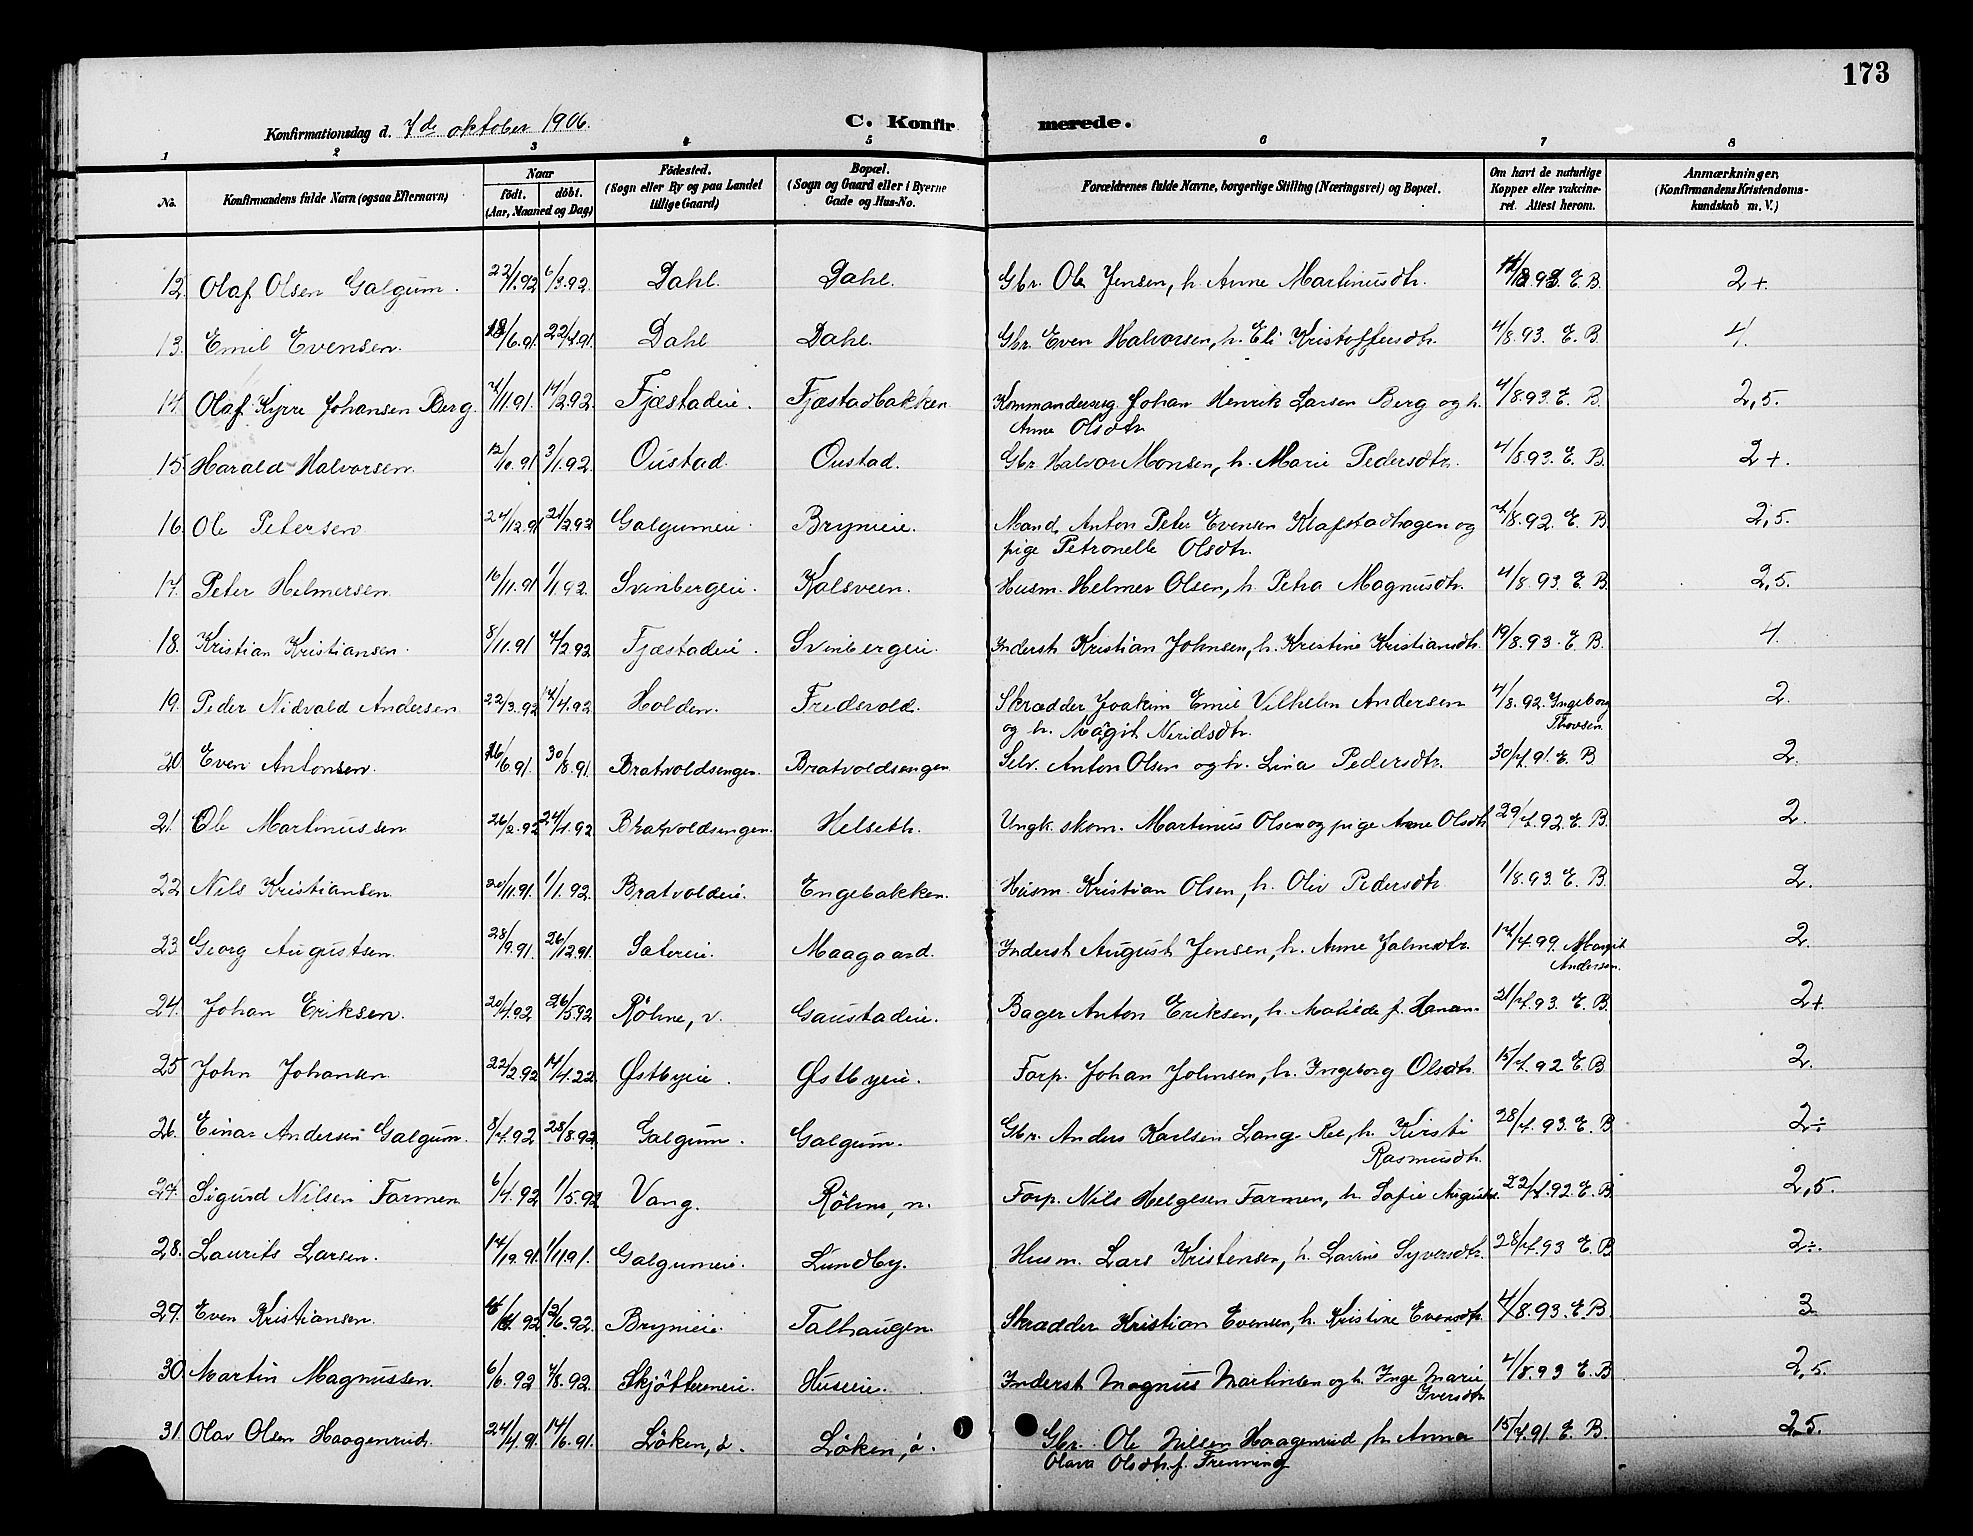 173
Konfirmationsdag d. 7de oktober 1906. C. Konfirmerede.
1 2 3 4 5 6 7 8
No. Konfirmandens fulde Navn (ogsaa Efternavn) Naar födt. döbt. (Aar, Maaned og Dag) Födested. (Sogn eller By og paa Landet tillige Gaard) Bopæl. (Sogn og Gaard eller i Byerne Gade og Hus-No. Forældrenes fulde Navne, borgerlige Stilling (Næringsvei) og Bopæl. Om havt de naturlige Kopper eller vaccineret. Attest herom. Anmærkninger, (Konfirmandens Kristendomskundskab m. V.)
12. Olaf Olsen Galgum. 22/1.92 6/3.92. Dahl. Dahl. Gbr. Ole Jensen, h. Anne Martinusdtr. E. B. 2+.
13. Emil Evensen. 18/6.91. 22/7.91. Dahl Dahl. Gbr. Even Halvorsen, h. Eli Kristoffersdtr. 4/8.93. E. B. 4.
14. Olaf Kyrre Johansen Berg 7/11.91. 14/2.92. Fjæstadeie. Fjæstadbakken Kommanderserg. Johan Henrik Larsen Berg og h. 4/8.93. E. B. 2,5.
Anne Olsdtr.
15. Harald Halvorsen. 12/10.91 3/1.92. Oustad. Oustad. Gbr. Halvor Monsen, h. Marie Pedersdtr. 4/8.93. E. B. 2+.
16. Ole Petersen 24/12.91 21/2.92 Galgumeie. Brynieie. Mand. Anton Peter Evensen Klafstadhagen og 4/8.92. E. B. 2,5.
pige Petronelle Olsdtr.
17. Peter Helmersen. 16/11.91 1/1.92. Svinbergeie. Kalsveen. Husm. Helmer Olsen, h. Petra Magnusdtr. 4/8.93. E. B. 2,5.
18. Kristian Kristiansen. 8/11.91. 7/2.92 Fjæstadeie. Svinbergeie. Inderst Kristian Johnsen, h. Kristine Kristiansdtr. 19/8.93. E. B. 4.
19. Peder Nidvald Andersen 22/3.92 17/4.92. Holden. Fredevold. Skrædder Joakim Emil Vilhelm Andersen 4/8.92. Ingeborg 2.
og h. Magit Neridsdtr. Thovsen.
20 Even Antonsen. 16/6.91. 30/8.91. Bratvoldsengen. Bratvoldsengen. Selv. Anton Olsen og h. Lina Pedersdtr. 30/7.91. E. B. 2.
21. Ole Martinussen 26/2.92 24/4.92 Bratvoldsengen. Helseth. Ungk. skom. Martinus Olsen og pige Anne Olsdtr. 29/7.92. E. B. 2.
22 Nils Kristiansen 20/11.91. 1/1.92. Bratvoldeie. Engebakken. Husm. Kristian Olsen, h. Oliv Pedersdtr 1/8.93. E. B. 2.
23. Georg Augustsen. 28/9.91. 26/12.91. Satereie. Maagaard. Inderst August Jensen, h. Anne Jahnsdtr. 17/4.99. Margit 2.
Andersen.
24. Johan Eriksen. 20/4.92. 26/5.92 Röhne, v. Gaustadeie. Bager Anton Eriksen, h. Matilde f. Hanan- 21/7.93. E. B. 2+
25 John Johansen 22/2.92 14/4.22. Østbyeie. Østbyeie. Forp. Johan Johnsen, h. Ingeborg Olsdtr. 15/7.92 E. B 2.
26. Einar Andersen Galgum. 8/7.92. 28/8.92. Galgum. Galgum. Gbr. Anders Karlsen Lang-Ree, h. Kirsti 28/7.93. E. B. 2÷
Rasmusdtr.
27. Sigurd Nilsen Farmen 6/4.92 1/5.92 Vang. Röhne, n. Forp. Nils Helgesen Farmen, h. Sofie Augusts. 22/7.92. E. B. 2,5.
28. Laurits Larsen. 14/9.91. 1/11.91. Galgumeie. Lundby. Husm. Lars Kristensen, h. Lavine Syversdtr. 28/7.93 E. B 2÷.
29. Even Kristiansen. 12/6.92. Brynieie. Talhaugen. Skrædder Kristian Evensen, h. Kristine Evensdtr. 4/8.93. E. B. 3
30. Martin Magnussen. 6/6.92 7/8.92. Skjötteneie. Huseie. Inderst Magnus Martinsen og h. Inge Marie 4/8.93 E. B. 2,5.
Iversdtr
31. Olav Olsen Haagenrud. 24/4.91. 14/6.91. Löken, ö. Löken, ö. Gbr. Ole Nilsen Haagenrud, h. Anna 15/7.91. E. B. 2,5.
Olava Olsdtr. f. Frenning